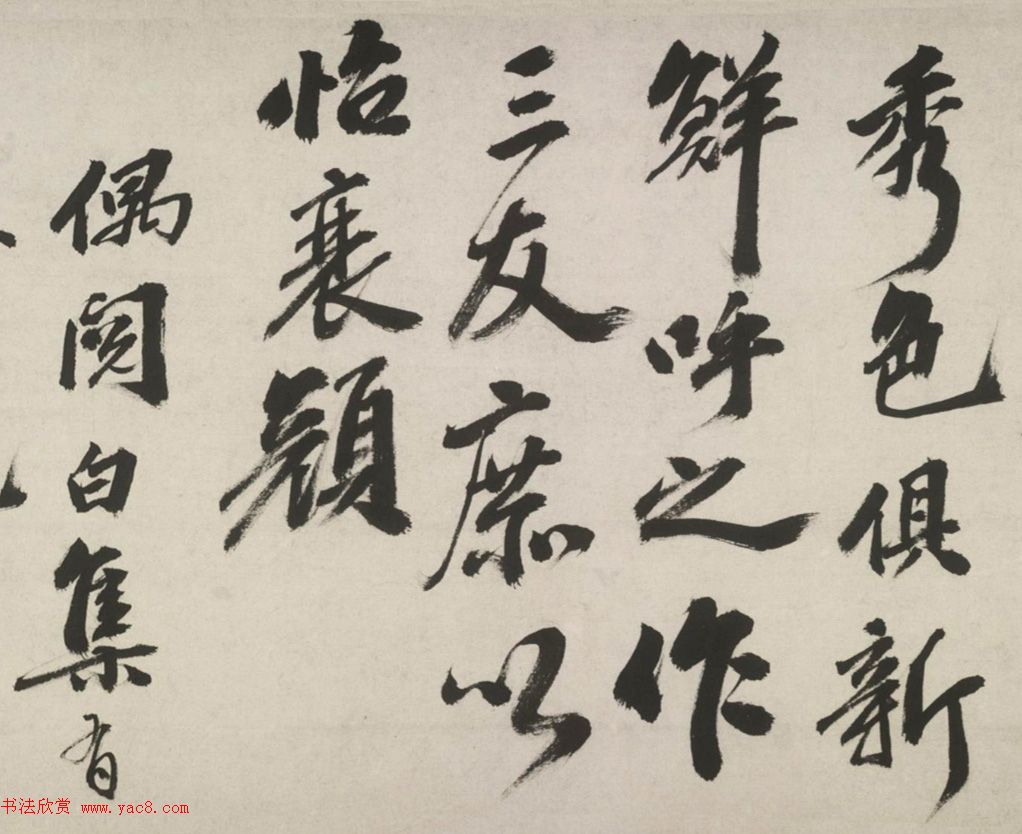 秀色俱新
鮮呼之作
三友庶以
怡衰顔
偶閱白集有
书法欣赏 www.yac8.com